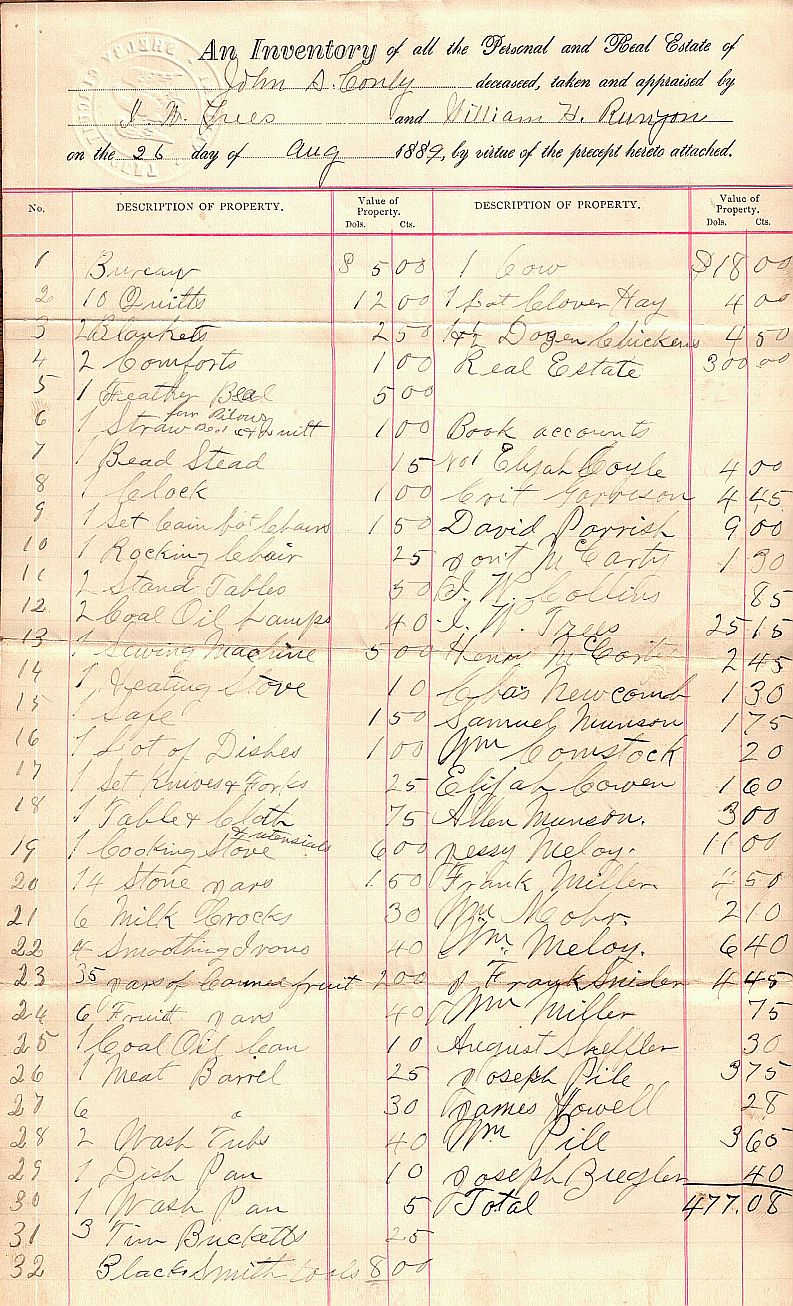 An Inventory of all the Personal and Real Estate of
John S. Conly deceased, taken and appraised by
I. W. Trees and William H. Runyon
on the 26 day of Aug 1889, by virtue of the precept hereto attached.
No. DESCRIPTION OF PROPERTY. Value of Property. Dols. Cts.
1 Bureau $ 5 00
2 10 Quilts 12 00
3 2 Blankets 2 50
4 2 Comforts 1 00
5 1 Feather Bead 5 00
6 1 Straw Bed four Pilows & Quilt 1 00
7 1 Bead Stead 15
8 1 Clock 1 00
9 1 Set Cain bot Chairs 1 50
10 1 Rocking Chair 25
11 2 Stand Tables 50
12 2 Coal Oil Lamps 40
13 1 Sewing Machine 5 00
14 1 Heating Stove 10
15 1 Safe 1 50
16 1 Lot of Dishes 1 00
17 1 Set Knives & Forks 25
18 1 Table & Cloth 75
19 1 Cooking Stove & utensials 6 00
20 14 Stone Jars 1 50
21 6 Milk Crocks 30
22 4 Smoothing Irons 40
23 35 Jars of Canned fruit 2 00
24 6 Fruit Jars 40
25 1 Coal Oil Can 10
26 1 Meat Barrel 25
27 6 " 30
28 2 Wash Tubs 40
29 1 Dish Pan 10
30 1 Wash Pan 5
31 3 Tin Bucketts 25
32 Black Smith tools 8 00
DESCRIPTION OF PROPERTY. Value of Property. Dols. Cts.
1 Cow $18 00
1 Lot Clover Hay 4 00
1 & 1/2 Dozen Chickens 4 50
Real Estate 300 00
Book accounts
No 1 Elijah Coyle 4 00
Crit Garrison 4 45
David Parrish 9 00
Jont McCarty 1 30
I. W. Collins 85
I. W. Trees 25 15
Henry McCorty 2 45
Chas Newcomb 1 30
Samuel Munson 1 75
Wm Comstock 20
Elijah Cowen 1 60
Allen Munson. 3 00
Jessy Meloy. 11 00
Frank Miller 4 50
Wm Mohr. 2 10
Wm. Meloy. 6 40
J Frank Snider 4 45
Wm Miller 75
August Sheffler 30
Joseph Pile 3 75
James Howell 28
Wm Pill 3 65
Joseph Ziegler 40
Total 477.08